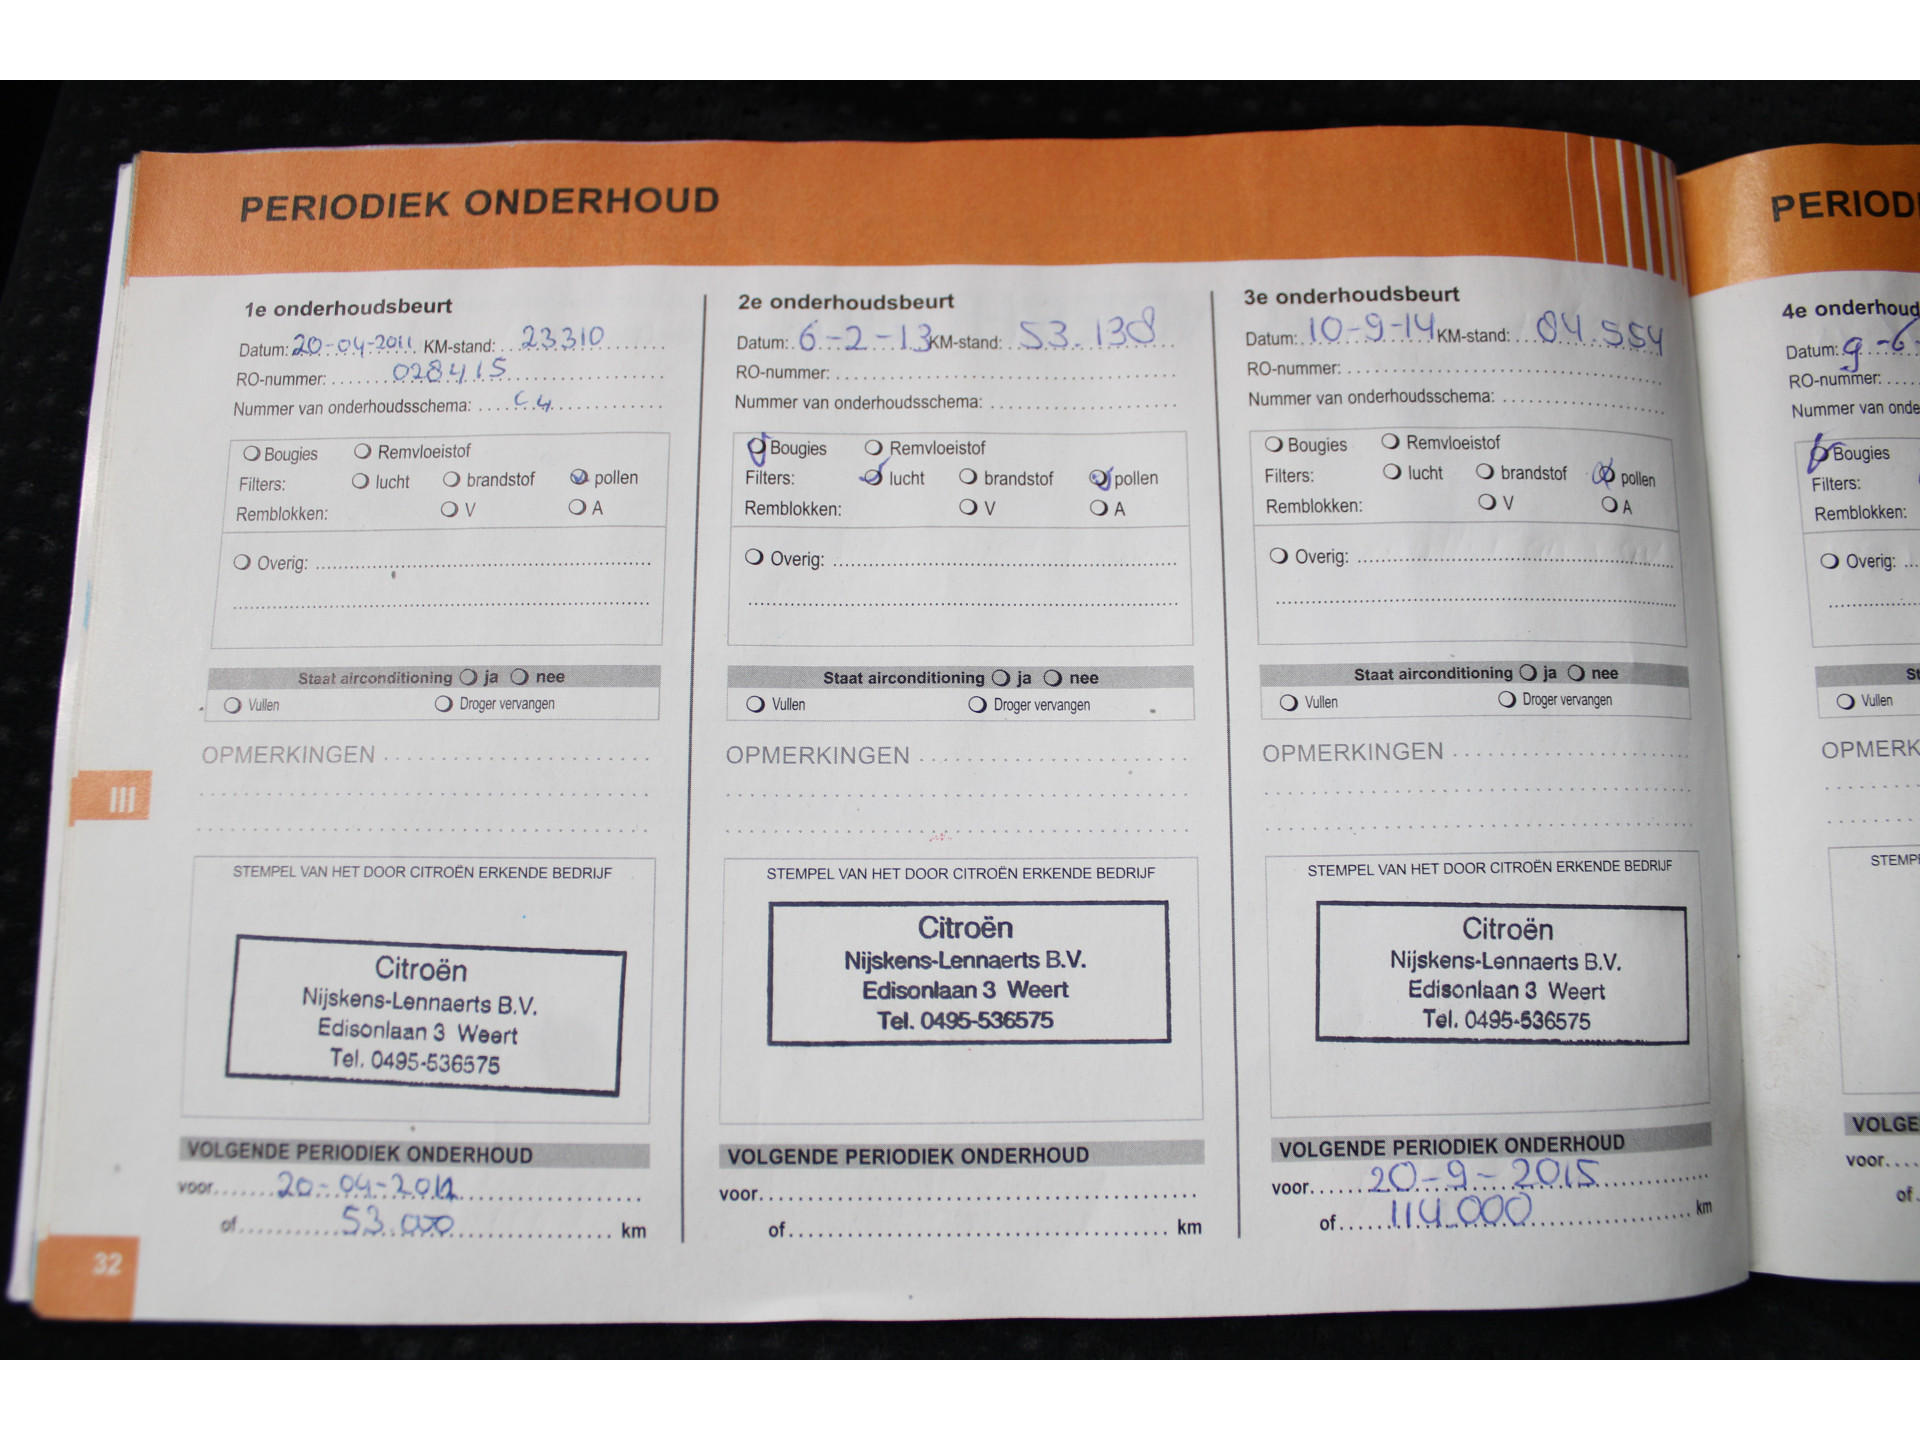 PERIODIEK ONDERHOUD
1e onderhoudsbeurt
Datum: 20-04-2011 KM-stand: 23310
RO-nummer: 028415
Nummer van onderhoudsschema: C4
Bougies Remvloeistof
Filters: lucht brandstof pollen
Remblokken: V A
Overig:
Staat airconditioning ja nee
Vullen Droger vervangen
OPMERKINGEN
STEMPEL VAN HET DOOR CITROËN ERKENDE BEDRIJF
Citroën
Nijskens-Lennaerts B.V.
Edisonlaan 3 Weert
Tel. 0495-536575
VOLGENDE PERIODIEK ONDERHOUD
voor 20-04-2012
of 53.000 km
III
32
2e onderhoudsbeurt
Datum: 6-2-13 KM-stand: 53.138
RO-nummer:
Nummer van onderhoudsschema:
Bougies Remvloeistof
Filters: lucht brandstof pollen
Remblokken: V A
Overig:
Staat airconditioning ja nee
Vullen Droger vervangen
OPMERKINGEN
STEMPEL VAN HET DOOR CITROËN ERKENDE BEDRIJF
Citroën
Nijskens-Lennaerts B.V.
Edisonlaan 3 Weert
Tel. 0495-536575
VOLGENDE PERIODIEK ONDERHOUD
voor
of km
3e onderhoudsbeurt
Datum: 10-9-14 KM-stand: 84.554
RO-nummer:
Nummer van onderhoudsschema:
Bougies Remvloeistof
Filters: lucht brandstof pollen
Remblokken: V A
Overig:
Staat airconditioning ja nee
Vullen Droger vervangen
OPMERKINGEN
STEMPEL VAN HET DOOR CITROËN ERKENDE BEDRIJF
Citroën
Nijskens-Lennaerts B.V.
Edisonlaan 3 Weert
Tel. 0495-536575
VOLGENDE PERIODIEK ONDERHOUD
voor 20-9-2015
of 114.000 km
PERIODI
4e onderhoud
Datum: 9-6-
RO-nummer:
Nummer van onde
Bougies
Filters:
Remblokken:
Overig:
St
Vullen
OPMERK
STEMPE
VOLGE
voor
of